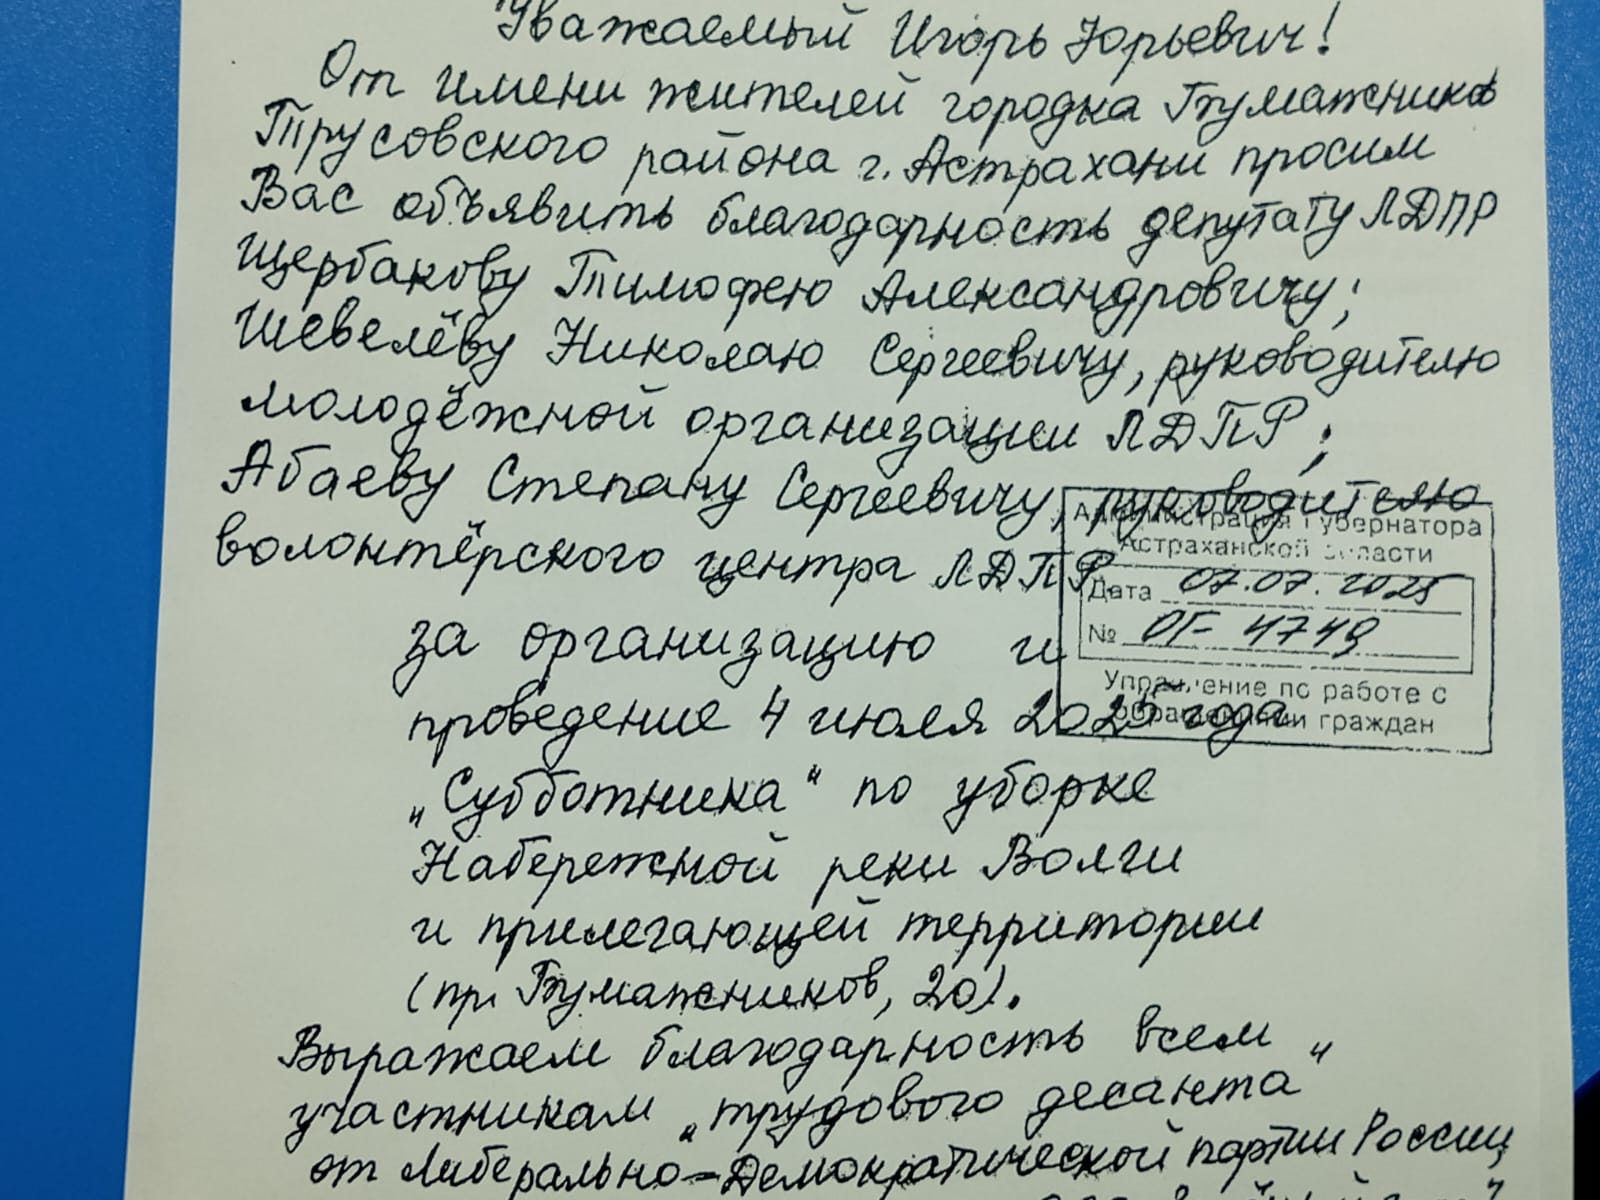 Уважаемый Игорь Юрьевич!
От имени жителей городка Бумажников
Трусовского района г. Астрахани просим
Вас объявить благодарность депутату ЛДПР
Щербакову Тимофею Александровичу;
Шевелёву Николаю Сергеевичу, руководителю
молодёжной организации ЛДПР;
Абаеву Степану Сергеевичу, руководителю
волонтёрского центра ЛДПР
Администрация Губернатора
Астраханской области
Дата 07.07.2025
№ ОГ- 4749
Управление по работе с
обращениями граждан
за организацию и
проведение 4 июля 2025 года
„Субботника“ по уборке
Набережной реки Волги
и прилегающей территории
(пр. Бумажников, 20).
Выражаем благодарность всем
участникам „трудового десанта“
от Либерально-Демократической партии России,